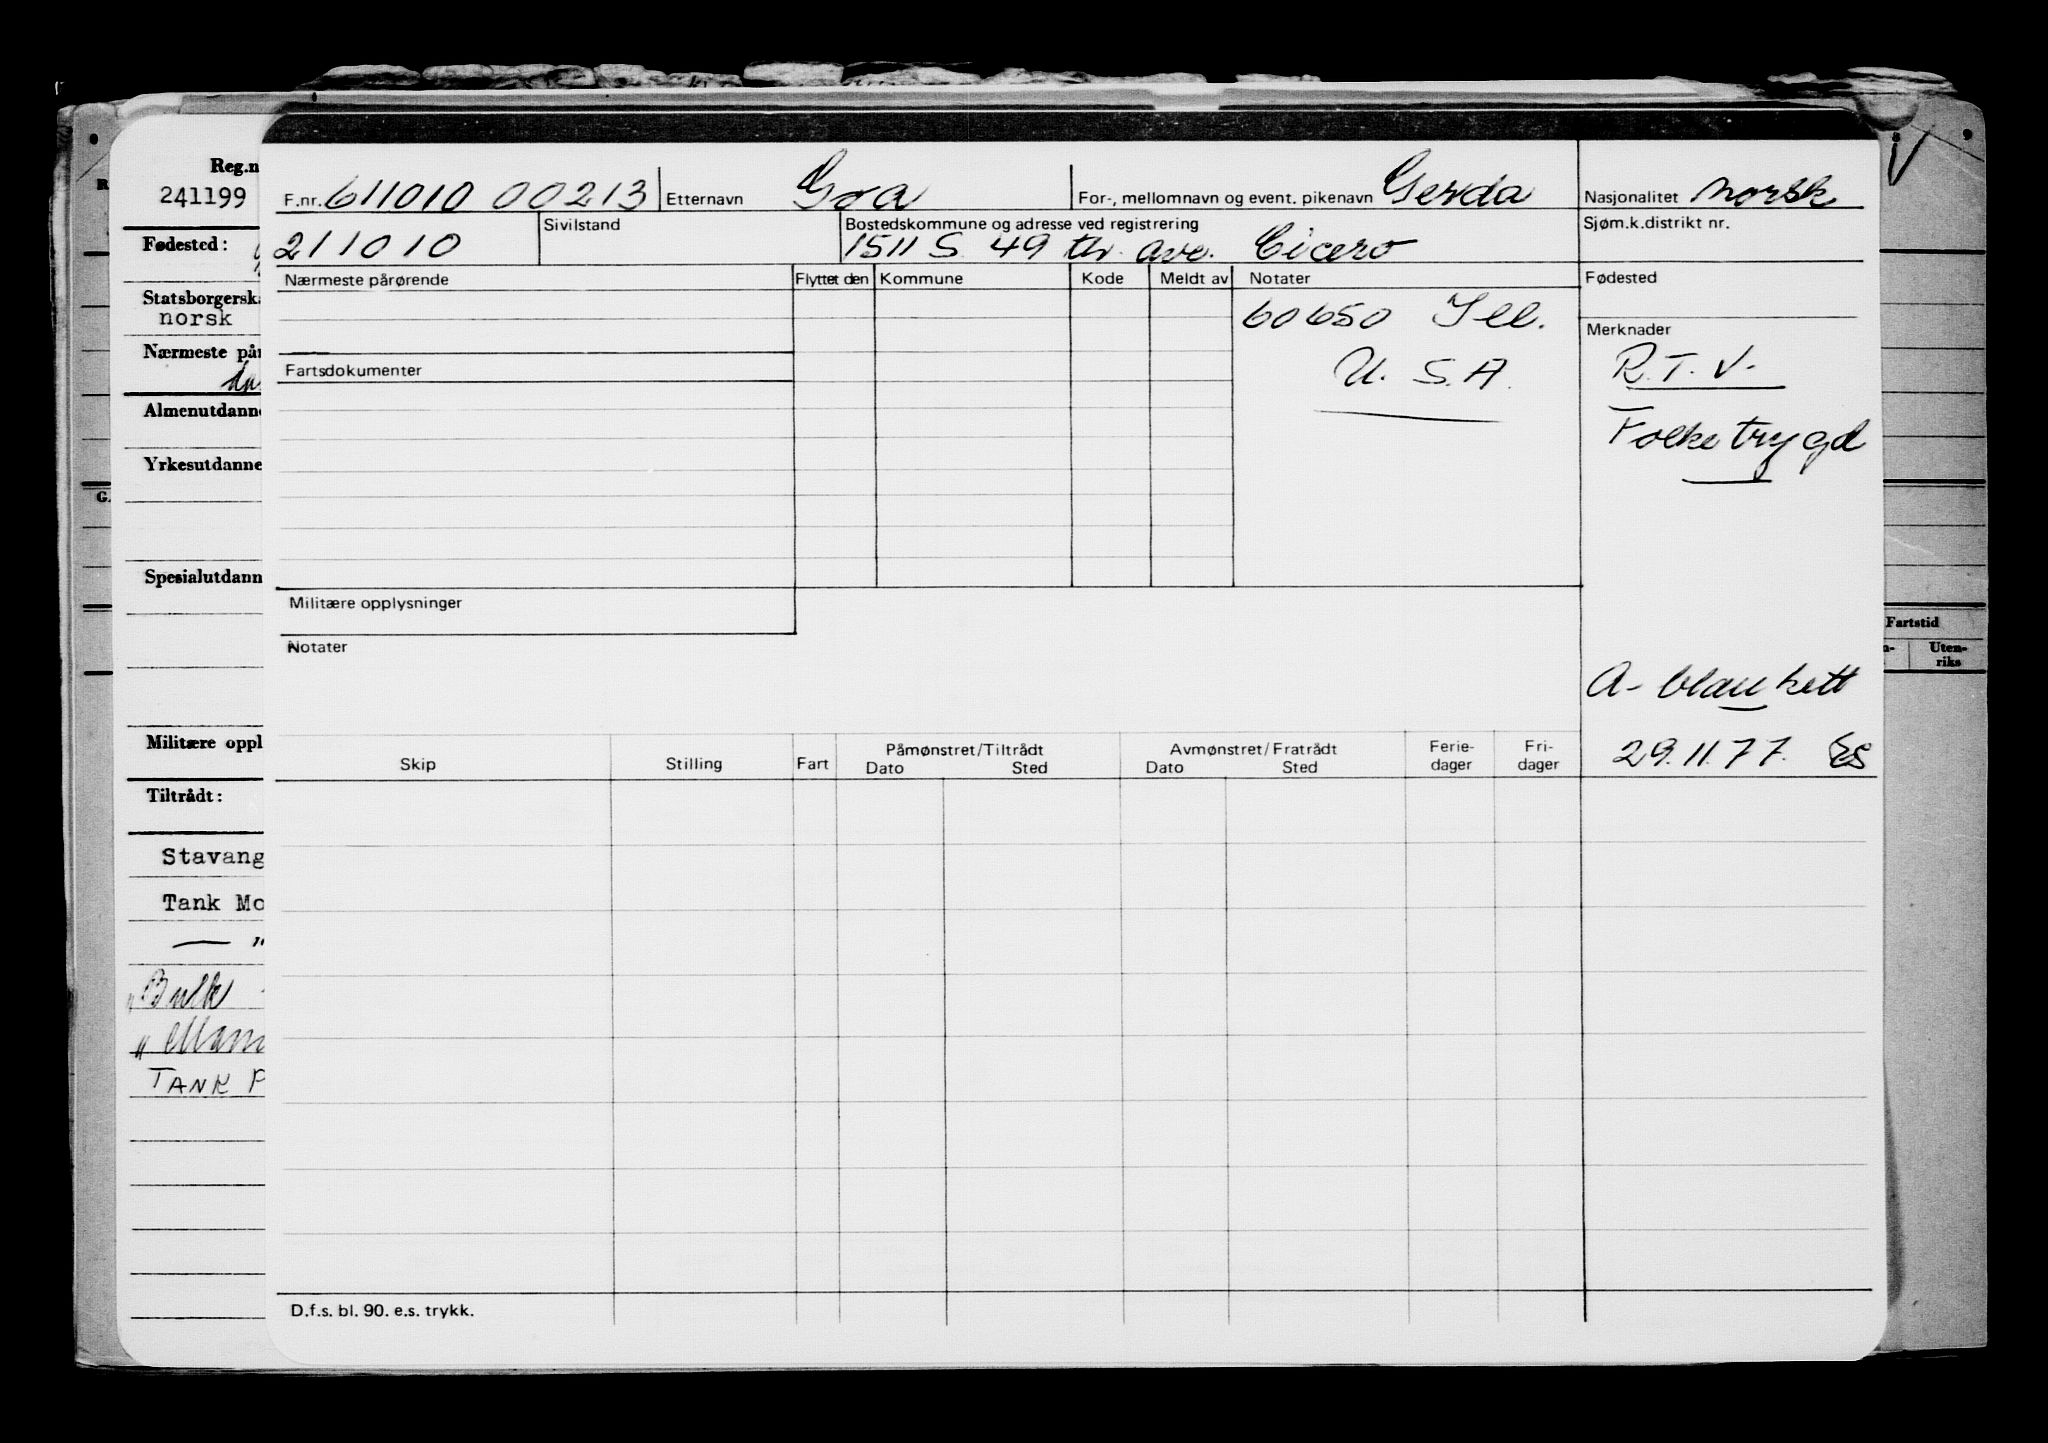 Reg.n
241199
Fødested:
Statsborgerska
norsk
Nærmeste pår
Almenutdanne
Yrkesutdanne
Spesialutdann
Militære oppl
Tiltrådt:
Stavang
Tank Mo
— "
"Bulk
TANK P
F.nr. 611010 00213
Etternavn Goa
For-, mellomnavn og event. pikenavn Gerda
Nasjonalitet norsk
211010
Sivilstand
Bostedskommune og adresse ved registrering
1511 S. 49 th. ave. Cicero
Sjøm.k.distrikt nr.
Nærmeste pårørende
Flyttet den
Kommune
Kode
Meldt av
Notater
60650 Ill.
U.S.A.
Fødested
Merknader
R.T.V.
Folketrygd
A-blankett
29.11.77. ES
Fartsdokumenter
Militære opplysninger
Notater
Skip
Stilling
Fart
Påmønstret/Tiltrådt
Dato Sted
Avmønstret/Fratrådt
Dato Sted
Ferie-
dager
Fri-
dager
D.f.s. bl. 90. e.s. trykk.
V
9
R
G.
Fartstid
n-
Uten-
riks